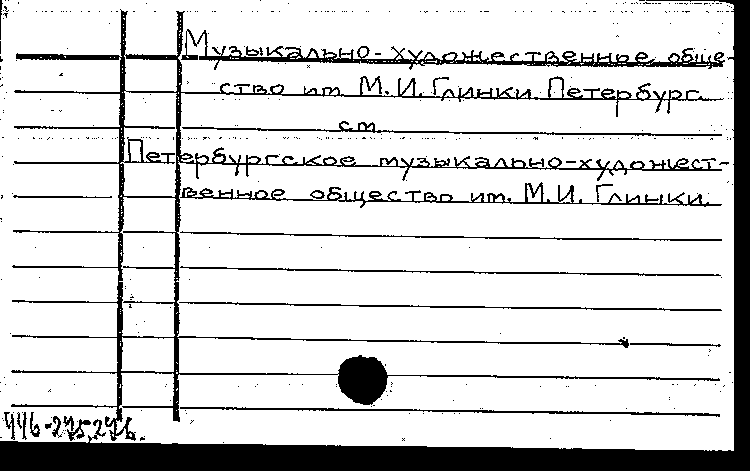 Музыкально-художественное обще-
ство им. М.И. Глинки. Петербург.
см.
Петербургское музыкально-художест-
венное общество им. М.И. Глинки.